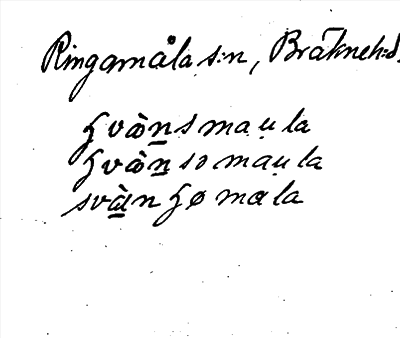 Ringamåla s:n, Bräkne h:d.
ꞕvàn̲smau̯la
ꞕvàn̲sɔmau̯la
svàɪ̲nꞕømɑla